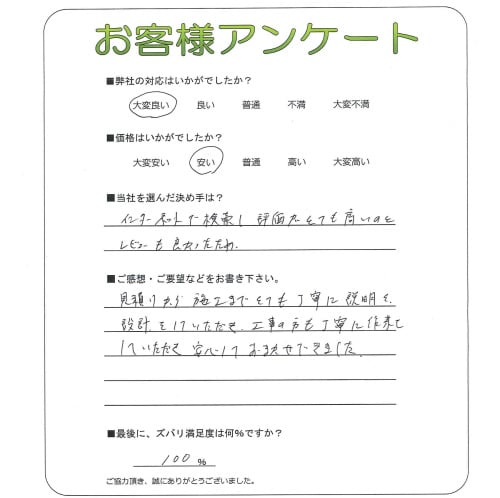 お客様アンケート
■弊社の対応はいかがでしたか?
大変良い 良い 普通 不満 大変不満
■価格はいかがでしたか?
大変安い 安い 普通 高い 大変高い
■当社を選んだ決め手は?
インターネットで検索し評価がとても高いのと
レビューも良かったため.
■ご感想・ご要望などをお書き下さい。
見積りから施工までとても丁寧に説明を、
設計をしていただき、工事の方も丁寧に作業を
していただき安心しておまかせできました。
■最後に、ズバリ満足度は何%ですか?
100 %
ご協力頂き、誠にありがとうございました。